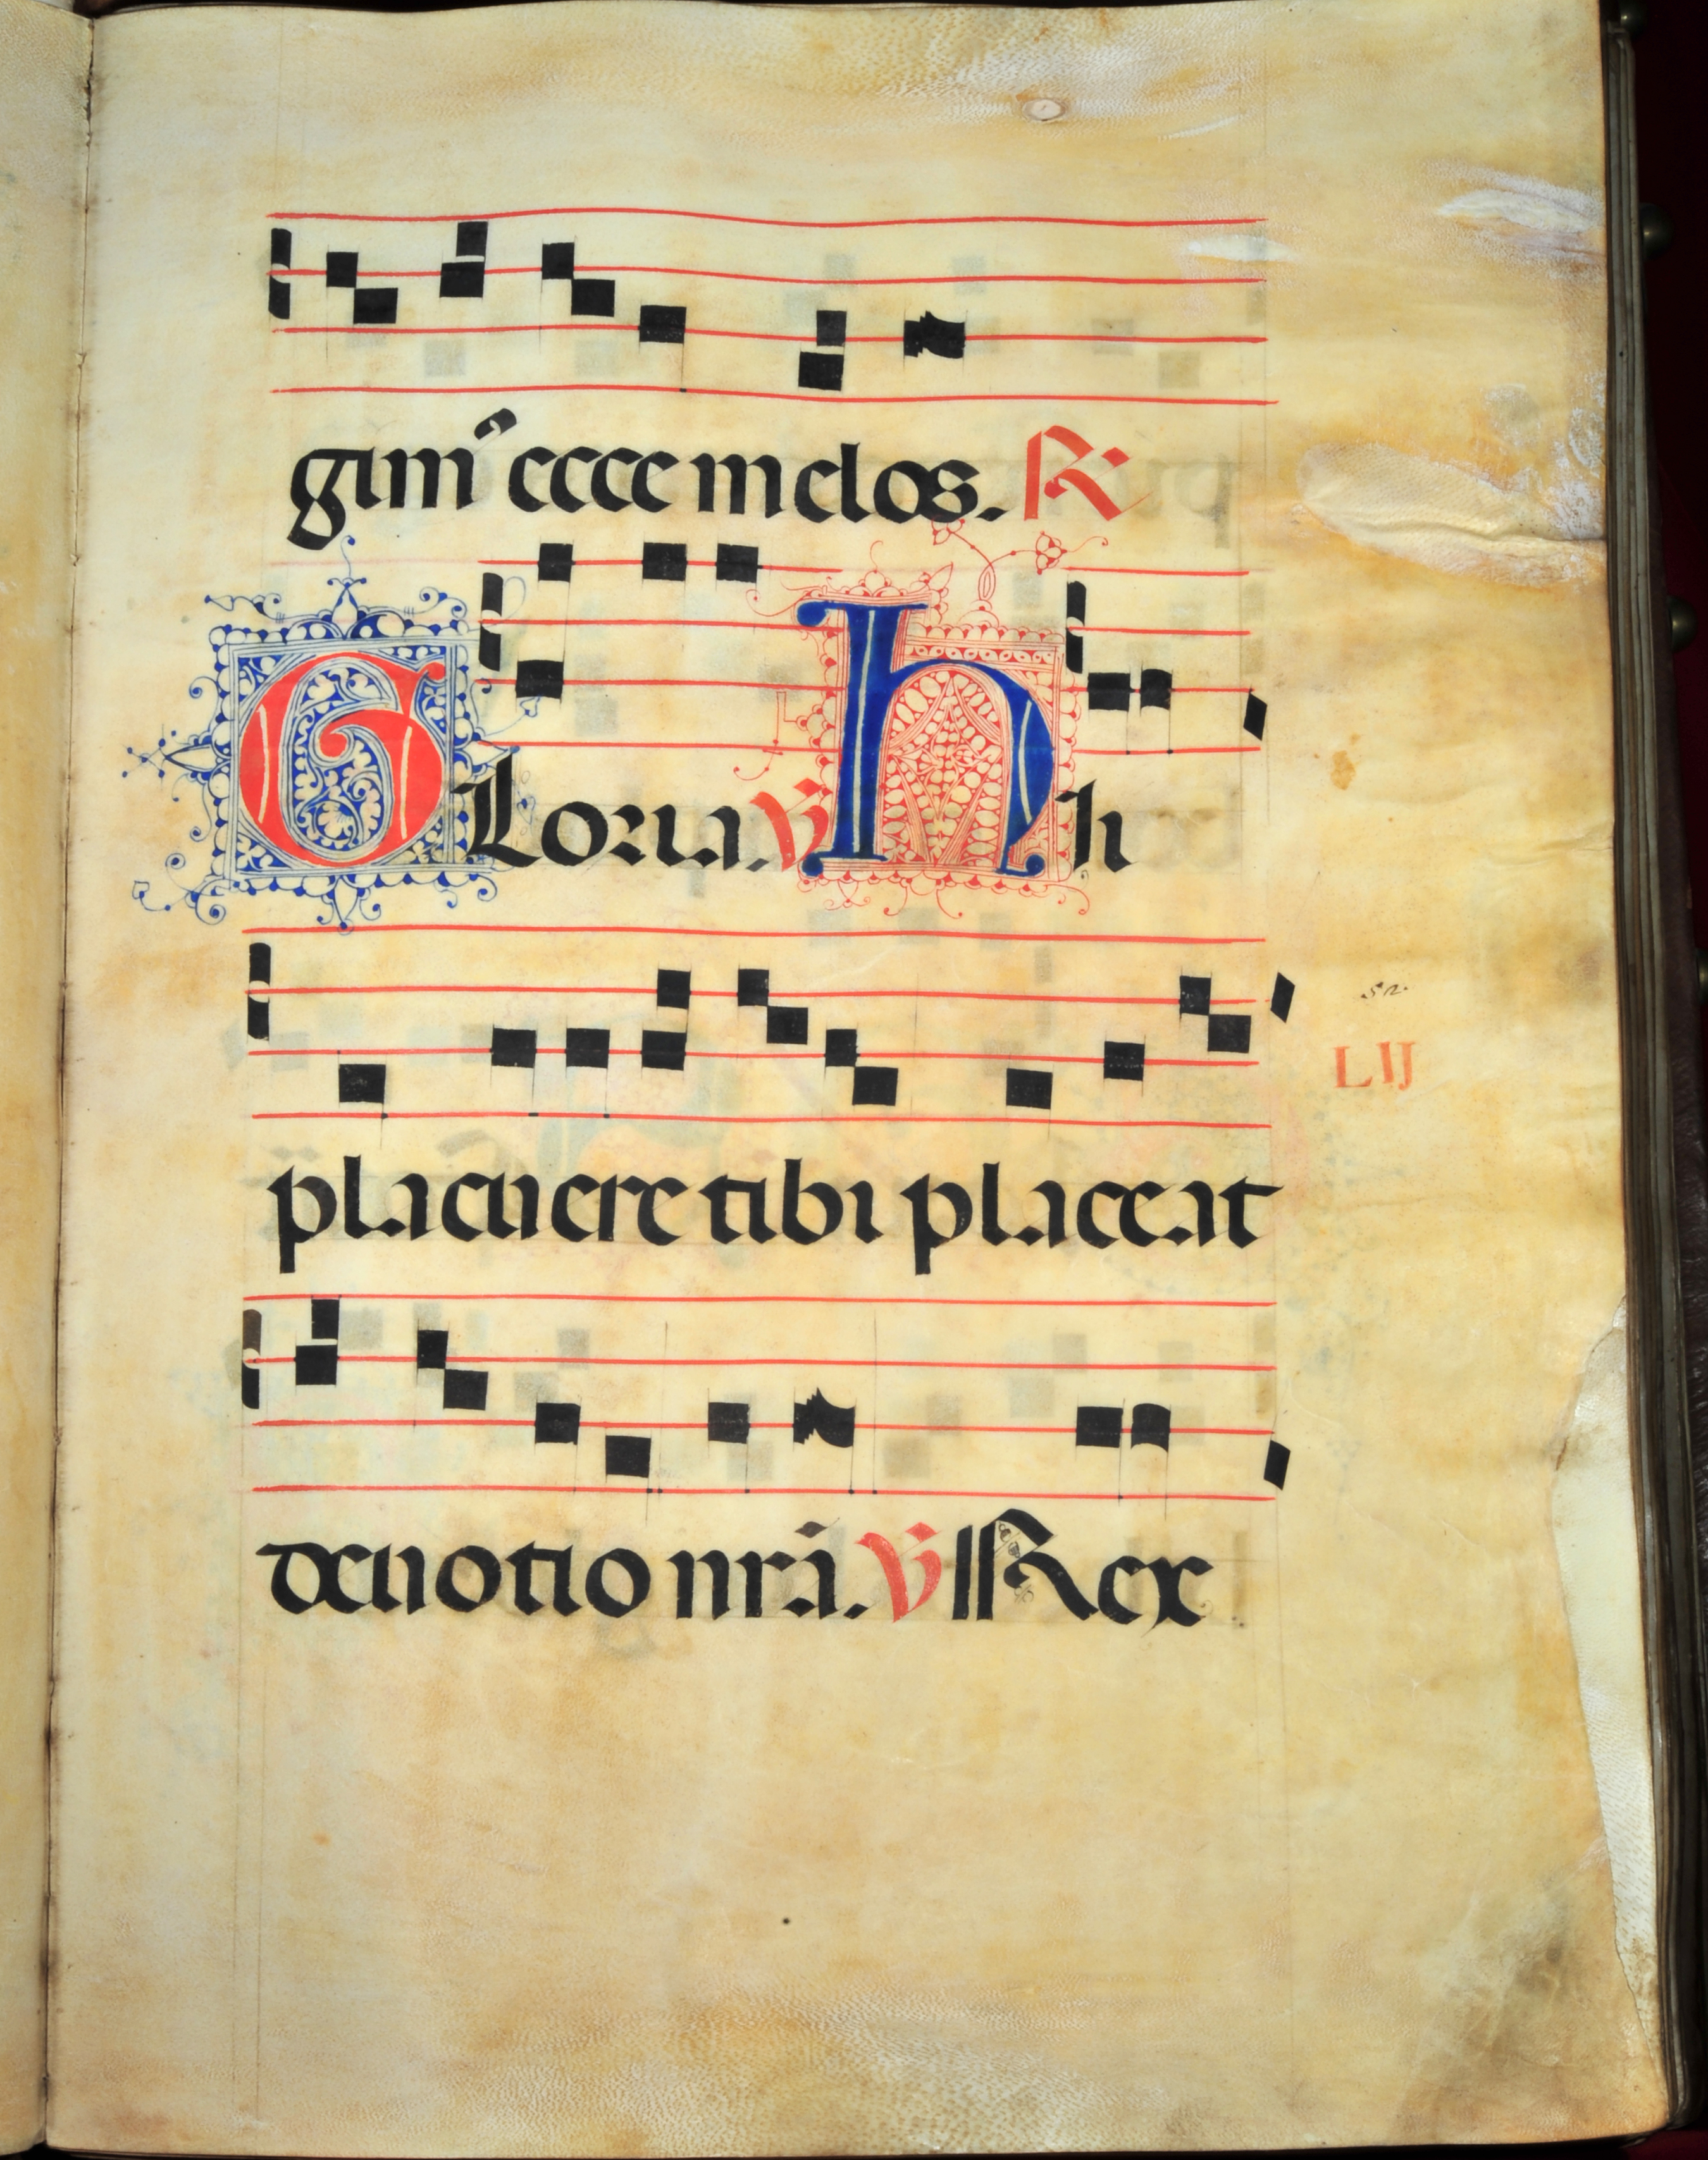 gim⁹ ecce melos. R
GLoria. V Hh
52.
LIJ
placuere tibi placeat
deuotio nr̄a. V Rex